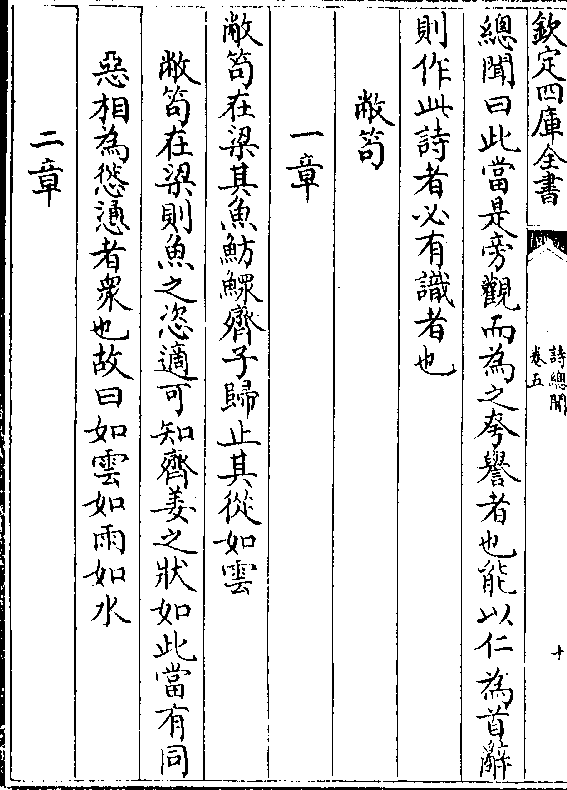 欽定四庫全書
詩總聞
卷五
十
總聞曰此當是旁觀而為之夸譽者也能以仁為首辭
則作此詩者必有識者也
敝笱
一章
敝笱在梁其魚魴鰥齊子歸止其從如雲
敝笱在梁則魚之恣適可知齊姜之狀如此當有同
惡相為慫恿者衆也故曰如雲如雨如水
二章